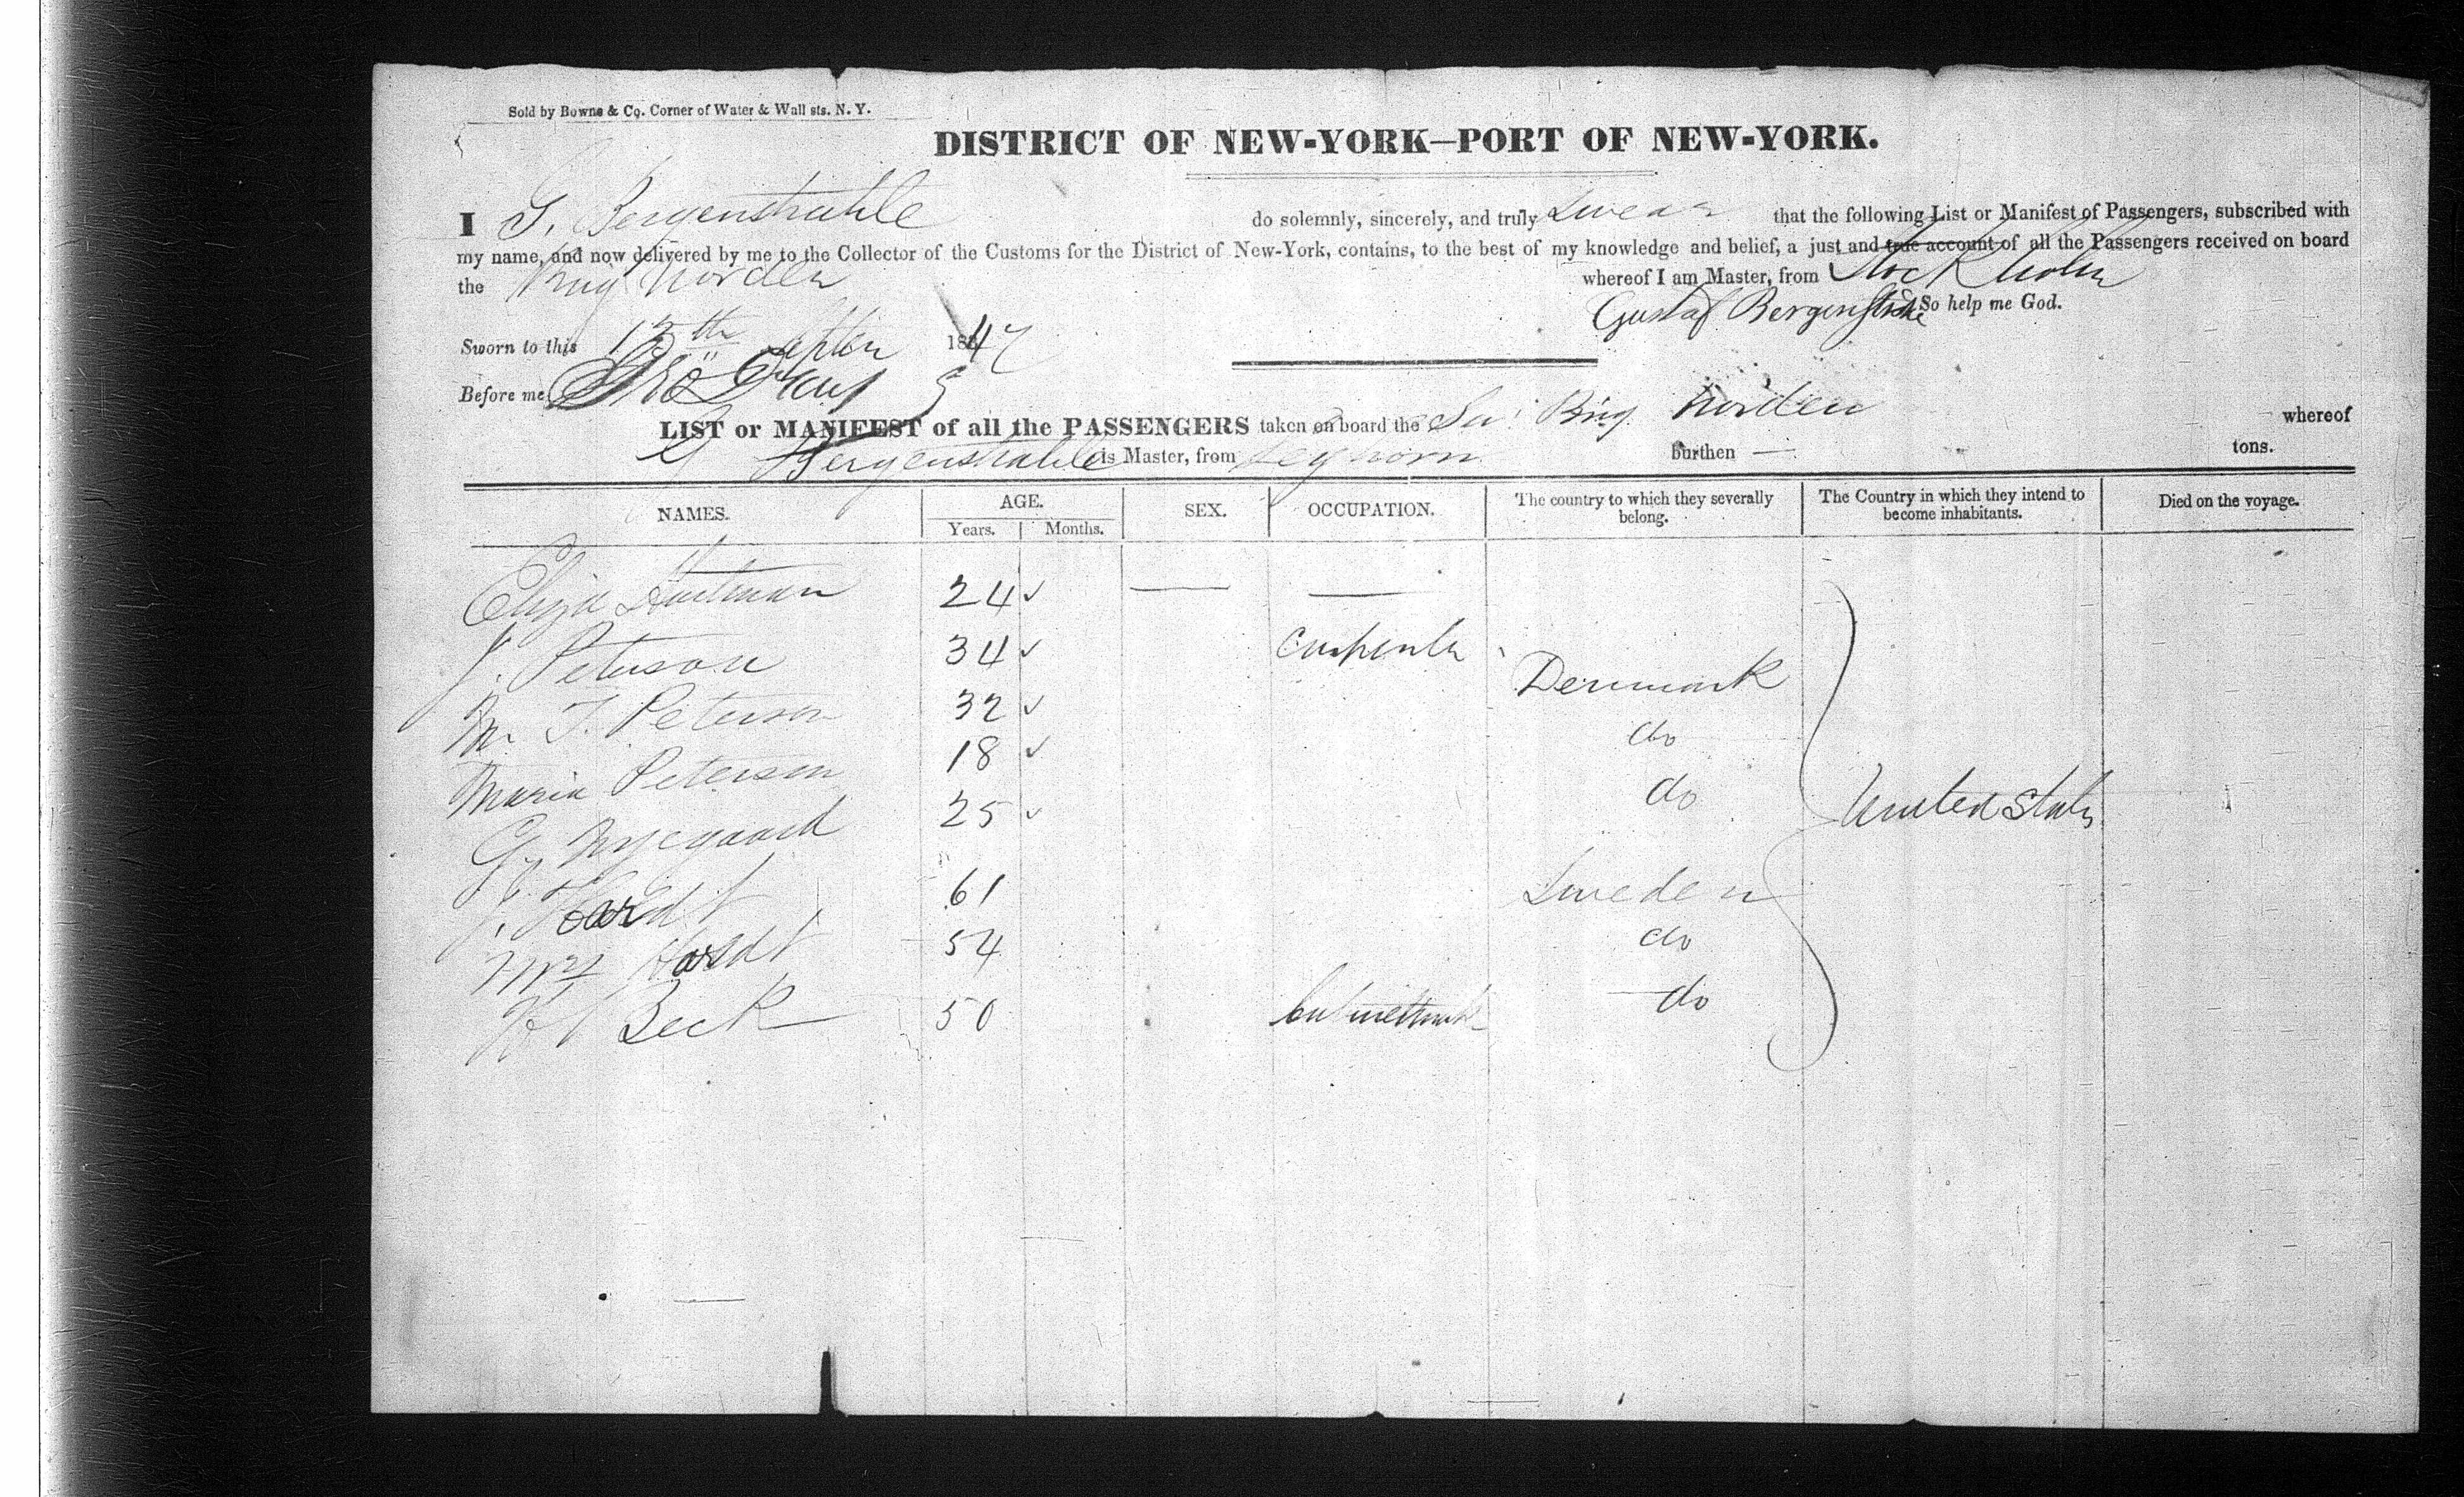 Sold by Bowne & Co. Corner of Water & Wall sts. N. Y.
DISTRICT OF NEW-YORK—PORT OF NEW-YORK.
I G. Bergenstrahle do solemnly, sincerely, and truly Swear that the following List or Manifest of Passengers, subscribed with
my name, and now delivered by me to the Collector of the Customs for the District of New-York, contains, to the best of my knowledge and belief, a just and true account of all the Passengers received on board
the Brig Norden whereof I am Master, from Stockholm
Gustaf So help me God.
Sworn to this 15th Septem 1847
Before me
LIST or MANIFEST of all the PASSENGERS taken on board the Sw. Brig Norden whereof
G Bergenstrahle is Master, from Leghorn burthen — tons.
NAMES. AGE. Years. Months. SEX. OCCUPATION. The country to which they severally belong. The Country in which they intend to become inhabitants. Died on the voyage.
Eliza 24
J. Peterson 34 Carpenter Denmark
M. J. Peterson 32 do
Maria Peterson 18 do
G. Nyegaard 25 United States
J. Hardt 61 Sweden
Mrs Hardt 54 do
Beck 50 Cabinetmak do